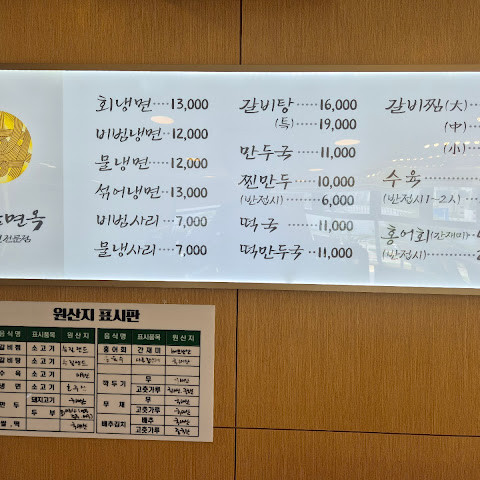 면옥
회냉면····13,000
비빔냉면··12,000
물냉면····12,000
섞어냉면··13,000
비빔사리··7,000
물냉사리··7,000
갈비탕·····16,000
(특)····19,000
만두국·····11,000
찐만두·····10,000
(반접시)·····6,000
떡국·····11,000
떡만두국··11,000
갈비찜(大)
(中)
(小)
수육
(반접시1~2시)
홍어회(간재미)
(반접시)
원산지 표시판
음식명 표시품목 원산지 음식명 표시품목 원산지
갈비찜 소고기 홍어회 간재미
갈비탕 소고기
수육 소고기 깍두기 무
냉면 소고기 고춧가루
만두 돼지고기 무채 무
두부 고춧가루
쌀,떡 배추김치 배추
고춧가루